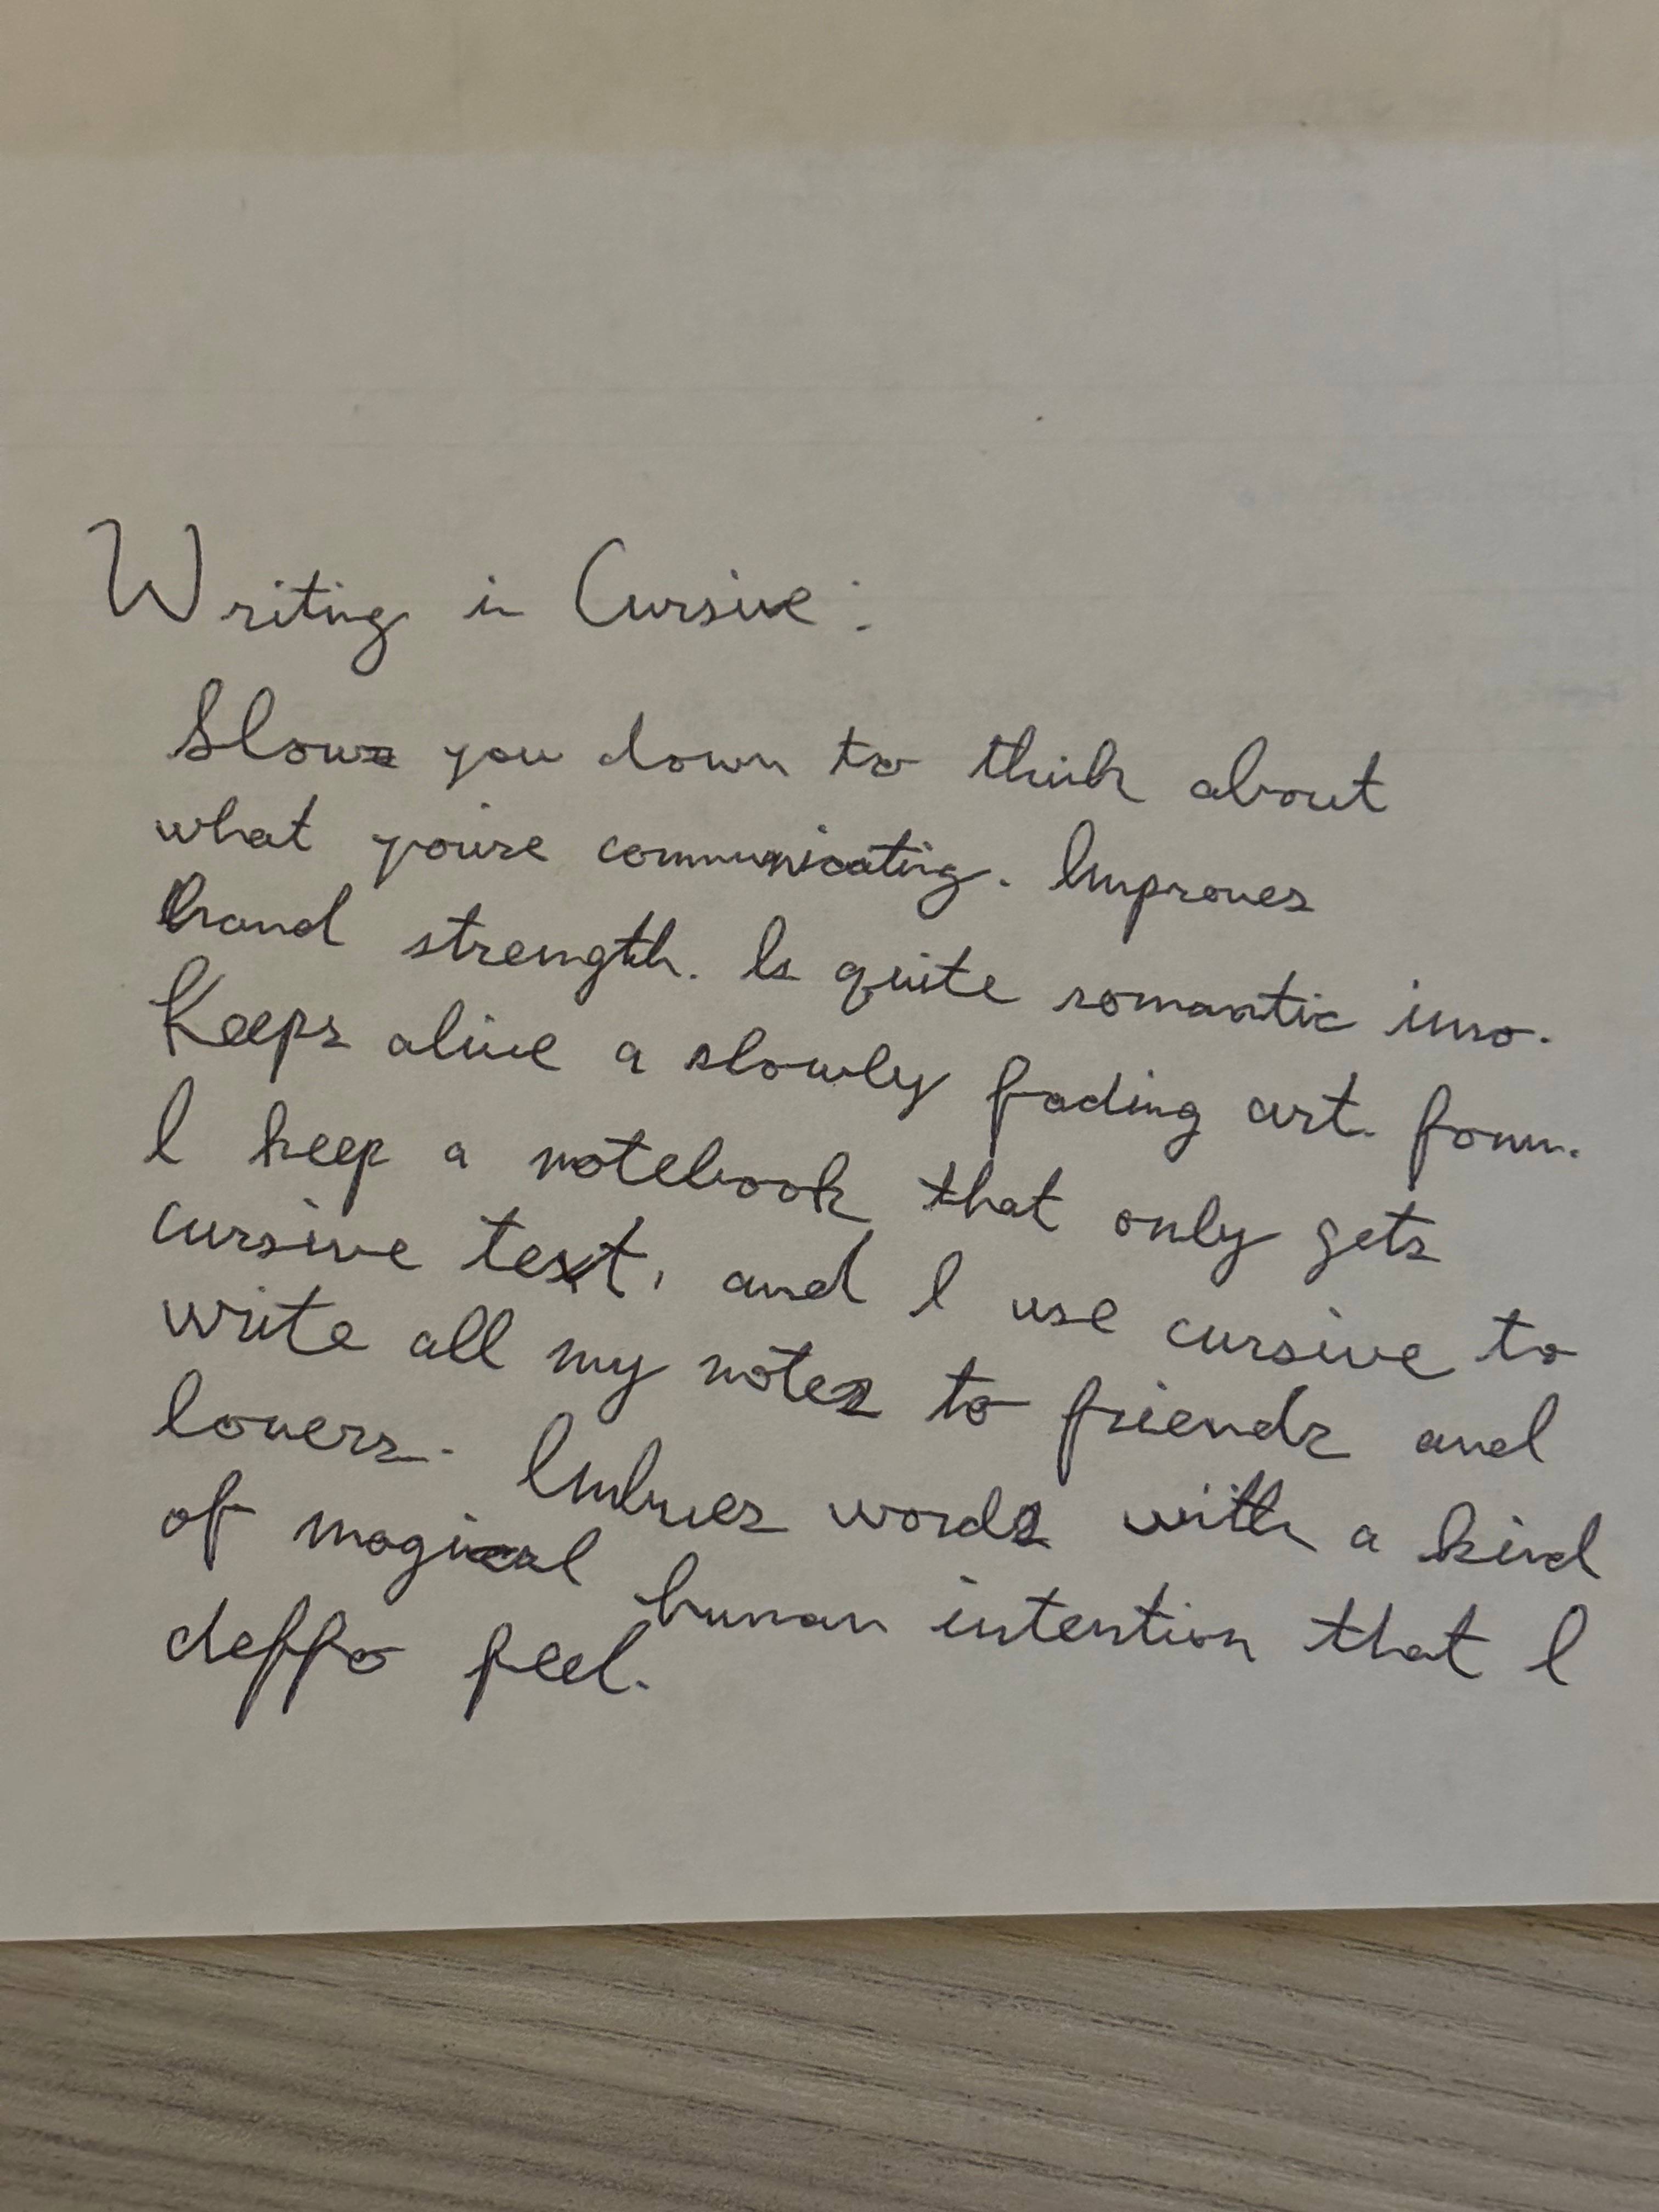 Writing in Cursive:
Slows you down to think about
what you're communicating. Improves
hand strength. Is quite romantic imo.
Keeps alive a slowly fading art form.
I keep a notebook that only gets
cursive text, and I use cursive to
write all my notes to friends and
lovers. Imbues words with a kind
of magical human intention that I
deffo feel.